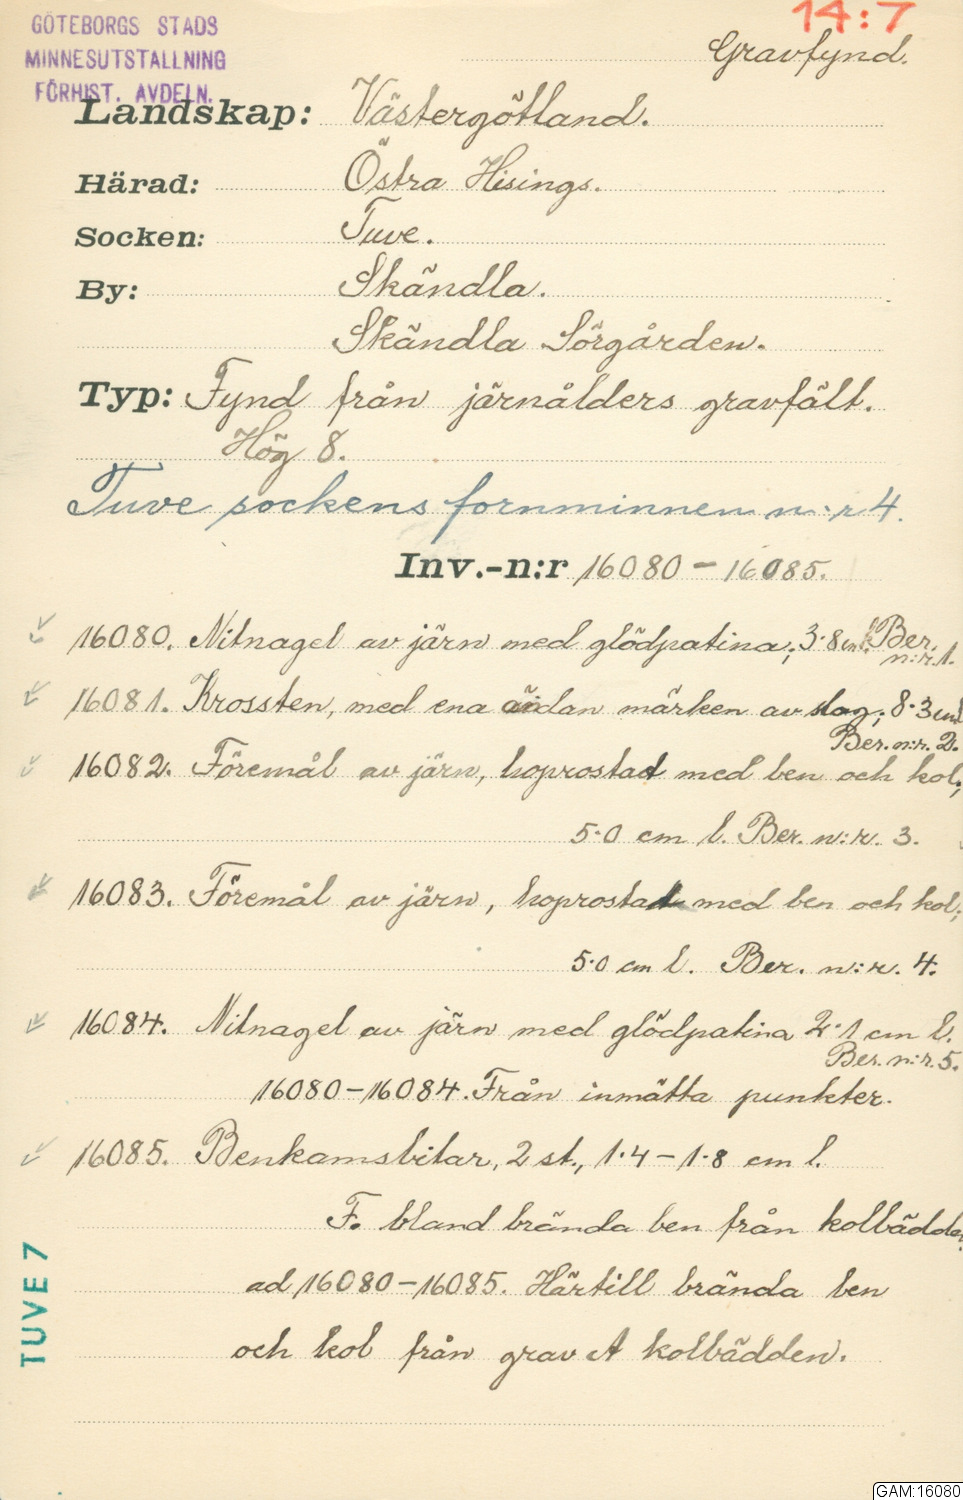 14:7
GÖTEBORGS STADS
MINNESUTSTALLNING
FÖRHIST. AVDELN.
Gravfynd.
Landskap: Västergötland.
Härad: Östra Hisings.
Socken: Tuve.
By: Skändla.
Skändla Sörgården.
Typ: Fynd från järnålders gravfält.
Hög 8.
Tuve sockens fornminnen n:r 4.
Inv.-n:r 16080-16085.
16080. Nitnagel av järn med glödpatina; 3.8 cm l. Ber.
n:r. 1.
16081. Krossten, med ena ändan märken av slag; 8.3 cm l
Ber. n:r. 2.
16082. Föremål av järn, hoprostat med ben och kol;
5.0 cm l. Ber. n:r. 3.
16083. Föremål av järn, hoprostat med ben och kol;
5.0 cm l. Ber. n:r. 4.
16084. Nitnagel av järn med glödpatina 2.1 cm l.
Ber. n:r. 5.
16080-16084. Från inmätta punkter.
16085. Benkamsbitar, 2 st., 1.4-1.8 cm l.
F. bland brända ben från kolbädden.
ad 16080-16085. Härtill brända ben
och kol från grav A kolbädden.
TUVE 7
GAM:16080